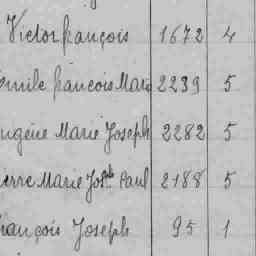 Victor françois 1672 4
Emile françois Marie 2239 5
Eugène Marie Joseph 2282 5
Pierre Marie Josph Paul 2188 5
François Joseph 95 1